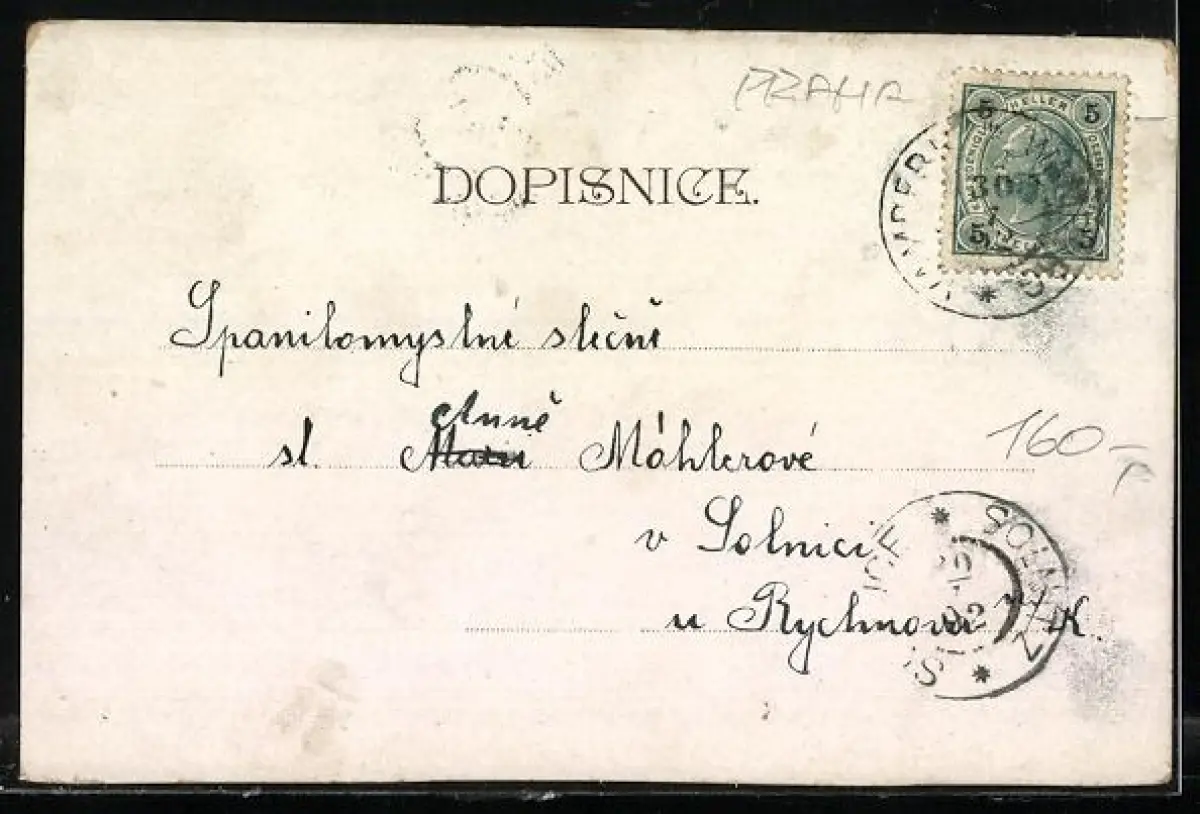 PRAHA
5 HELLER 5
5 5
DOPISNICE.
Spanilomyslné slečně
Anně
sl. Máhlerové
160-
v Solnici
u Rychnova n/K.
SOLNITZ